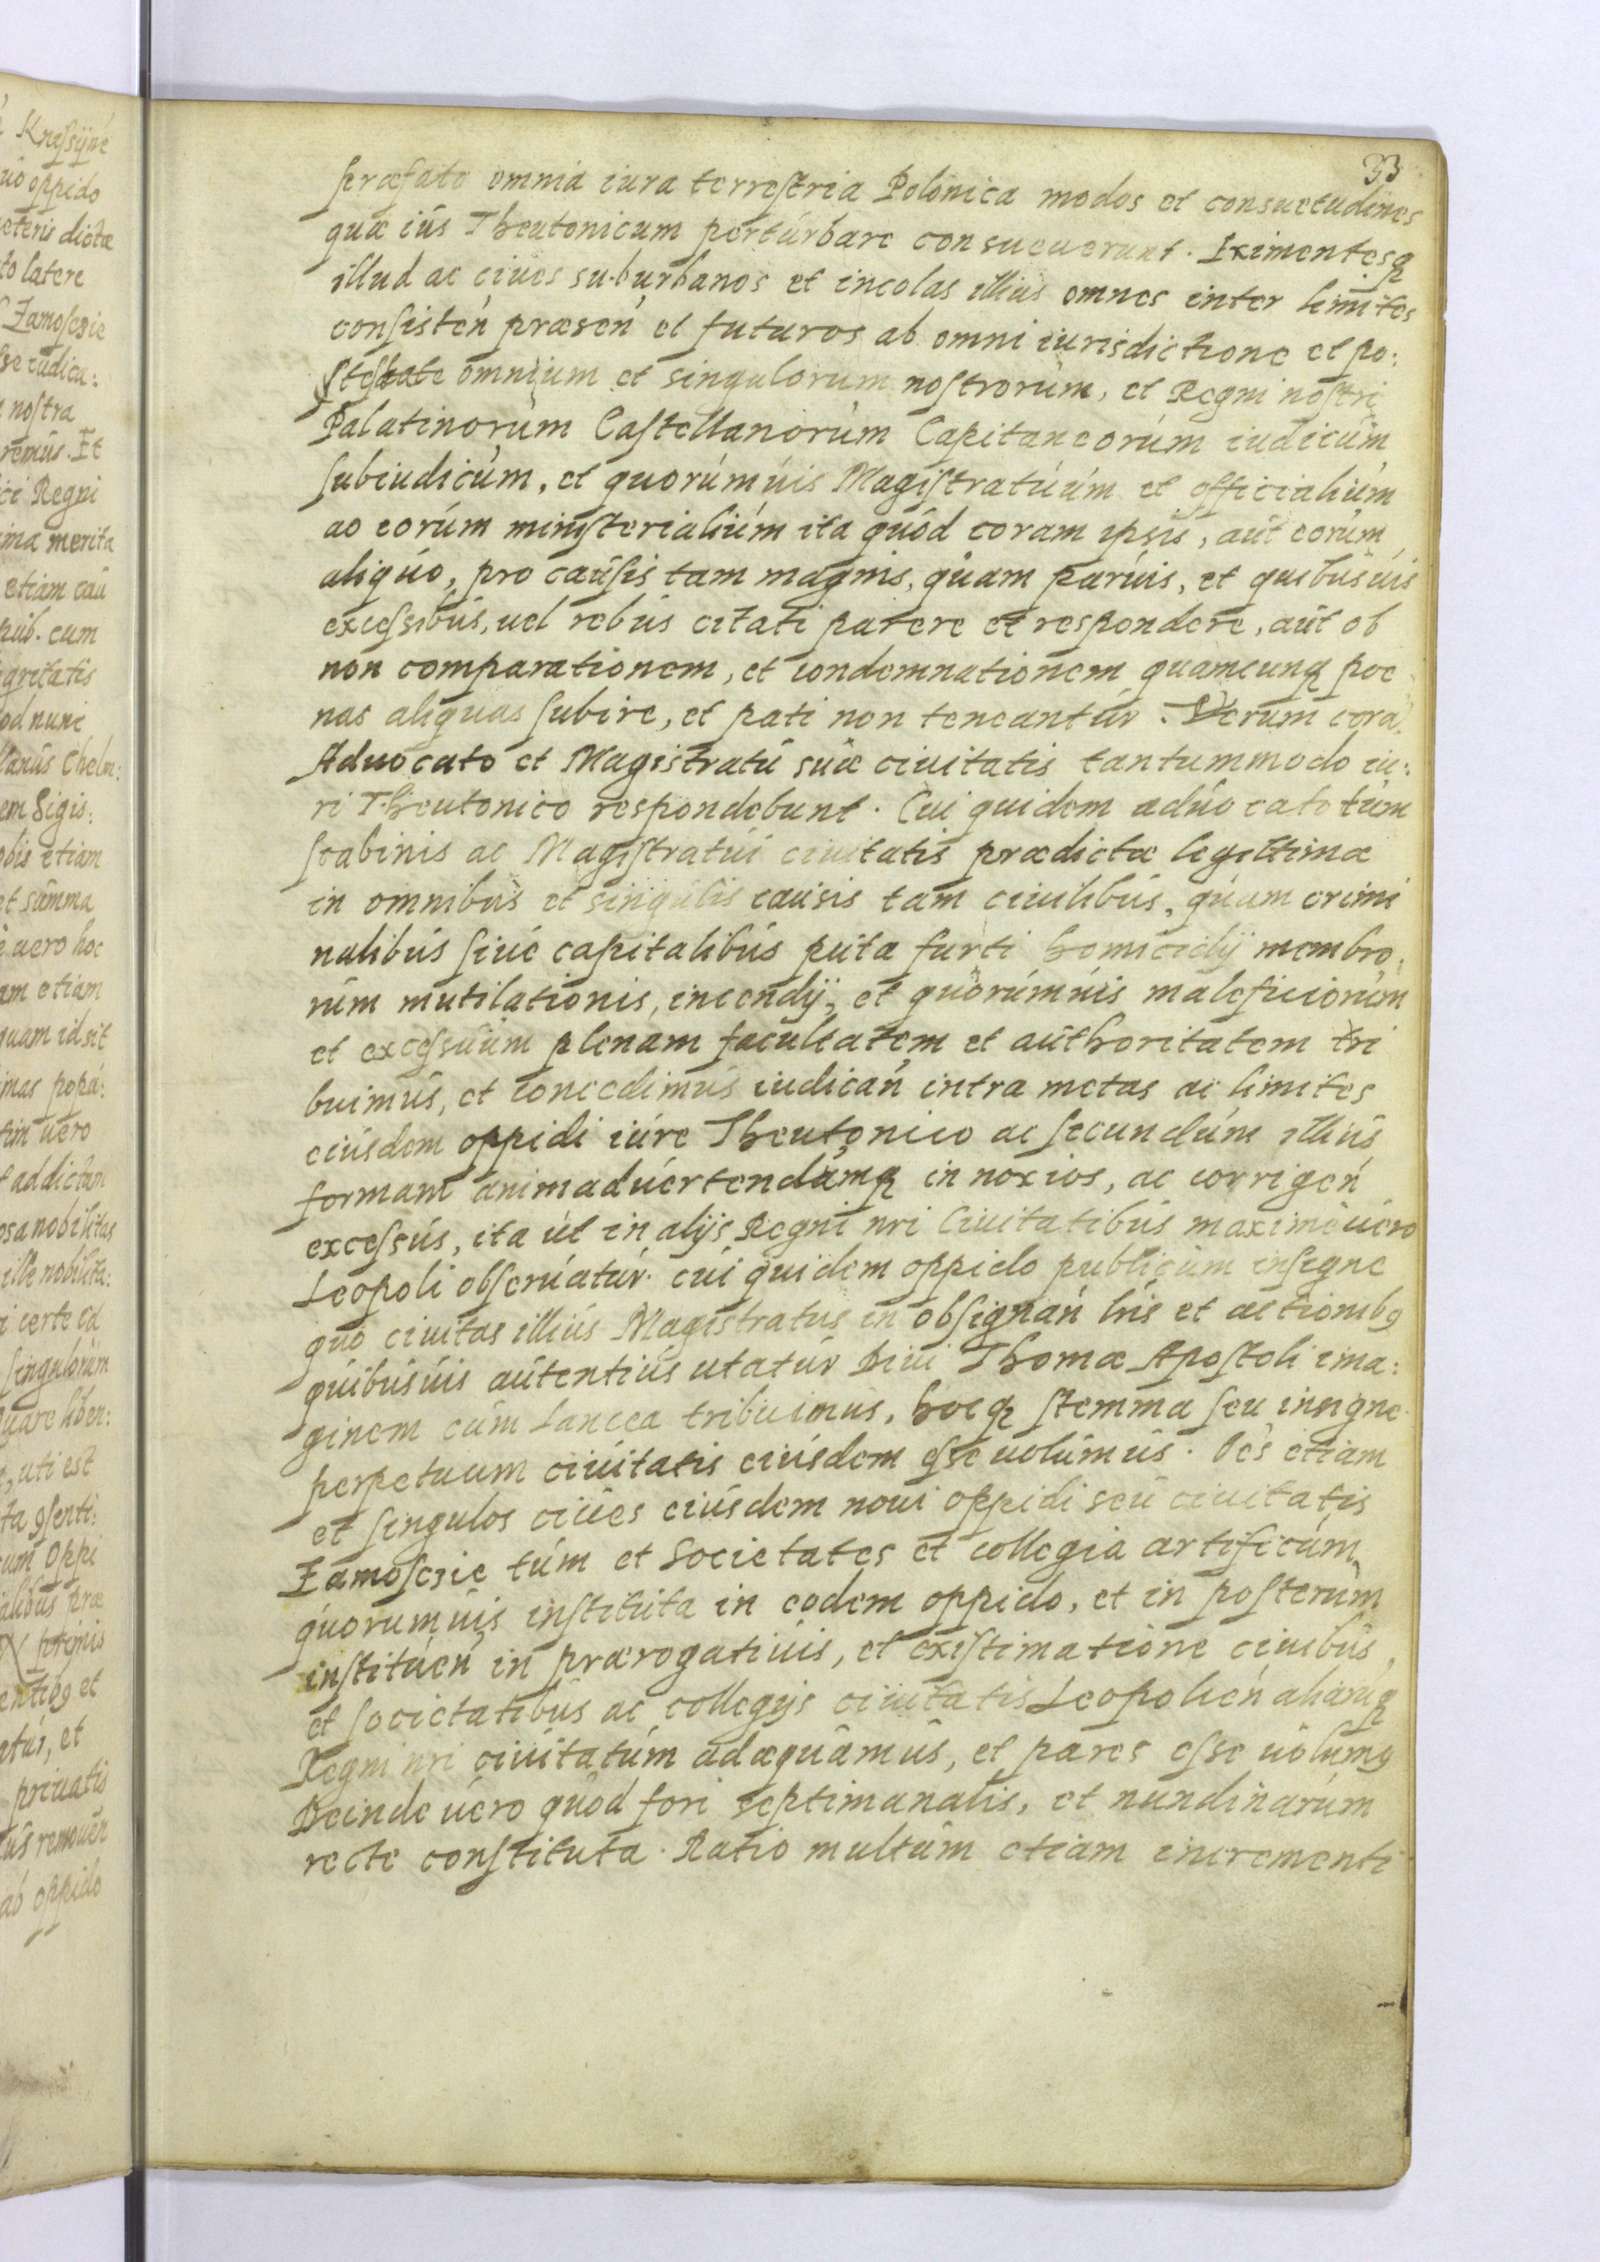 Knesijne
uo oppido
ceteris dictæ
to latere
Zamoscie
se iudicu:
nostra
remus. Et
ici Regni
ima merita
etiam cau
pub. cum
igritatis
od nunc
llanus Chelm:
em Sigis:
obis etiam
et summa
uero hoc
am etiam
quam id sit
imas popu:
tim uero
addictum
osa nobilitas
ille nobilita:
i certe ed
singulorum
quare liben:
uti est
ta 9senti:
um Oppi
alibus præ
primis
entib9 et
atur, et
priuatis
us remouen
ab oppido
33
præfato omnia iura terrestria Polonica modos et consuetudines
quæ ius Theutonicum perturbare consueuerunt. Eximentesq
illud ac ciues suburbanos et incolas illius omnes inter limites
consisten præsen et futuros ab omni iurisdictione et po:
testate omnium et singulorum nostrorum, et Regni nostri
Palatinorum Castellanorum Capitaneorum iudicum
subiudicum, et quorumuis Magistratuum et officialium
ac eorum ministerialium ita quod coram ipsis, aut eorum
aliquo, pro causis tam magnis, quam paruis, et quibusuis
excessibus, uel rebus citati parere et respondere, aut ob
non comparationem, et condemnationem quamcunq poe
nas aliquas subire, et pati non teneantur. Verum cora
Aduocato et Magistratu suæ ciuitatis tantummodo iu:
ri Theutonico respondebunt. Cui quidem aduocato tum
scabinis ac Magistratui ciuitatis prædictæ legittimæ
in omnibus et singulis causis tam ciuilibus, quam crimi
nalibus siue capitalibus puta furti homicidij membro:
rum mutilationis, incendij, et quorumuis maleficiorum
et excessuum plenam facultatem et authoritatem tri
buimus, et concedimus iudican intra metas ac limites
eiusdem oppidi iure Theutonico ac secundum illius
formam animaduertendumq in noxios, ac corrigen
excessus, ita ut in alijs Regni nri Ciuitatibus maxime uero
Leopoli obseruatur. cui quidem oppido publicum insigne
quo ciuitas illius Magistratus in obsignan lris et actionib9
quibusuis autentius utatur Diui Thomæ Apostoli ima:
ginem cum Lancea tribuimus, hocq stemma seu insigne
perpetuum ciuitatis eiusdem esse uolumus. Oes etiam
et singulos ciues eiusdem noui oppidi seu ciuitatis
Zamoscie tum et Societates et collegia artificum
quorumuis instituta in eodem oppido, et in posterum
instituen in prærogatiuis, et existimatione ciuibus,
et societatibus ac collegijs ciuitatis Leopolien aliarumq
Regni nri ciuitatum adæquamus, et pares esse uolum9
Deinde uero quod fori septimanalis, et nundinarum
recte constituta. Ratio multum etiam incrementi